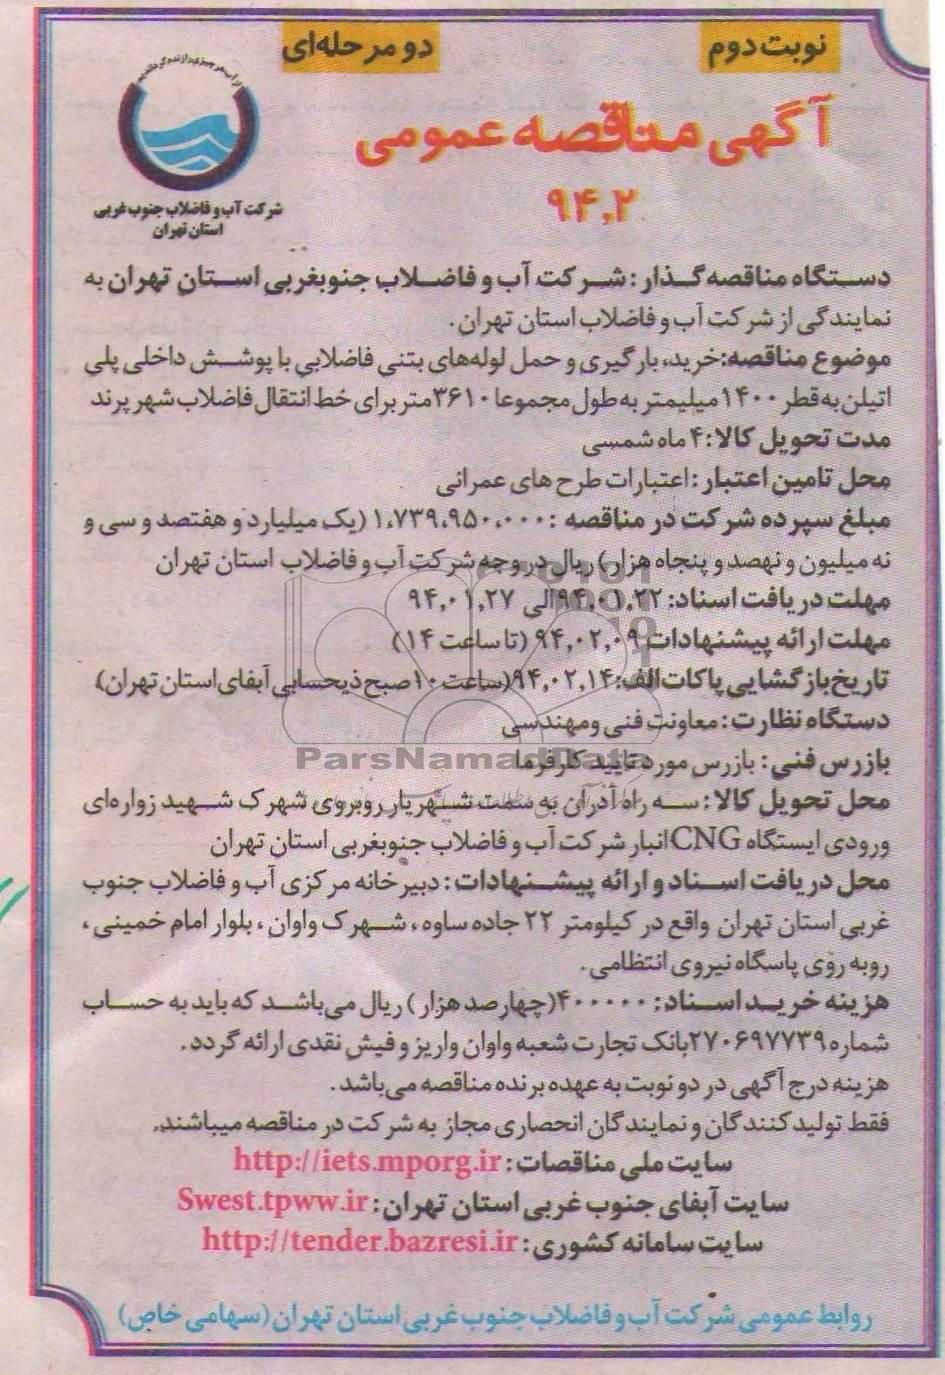 نوبت دوم
دو مرحله‌ای
از آب هر چیزی را زنده گردانیدیم
شرکت آب و فاضلاب جنوب غربی
استان تهران
آگهی مناقصه عمومی
۹۴٫۲
دستگاه مناقصه‌گذار: شرکت آب و فاضلاب جنوبغربی استان تهران به
نمایندگی از شرکت آب و فاضلاب استان تهران.
موضوع مناقصه: خرید، بارگیری و حمل لوله‌های بتنی فاضلابی با پوشش داخلی پلی
اتیلن به قطر ۱۴۰۰ میلیمتر به طول مجموعا ۳۶۱۰ متر برای خط انتقال فاضلاب شهر پرند
مدت تحویل کالا: ۴ ماه شمسی
محل تامین اعتبار: اعتبارات طرح های عمرانی
مبلغ سپرده شرکت در مناقصه: ۱،۷۳۹،۹۵۰،۰۰۰ (یک میلیارد و هفتصد و سی و
نه میلیون و نهصد و پنجاه هزار) ریال در وجه شرکت آب و فاضلاب استان تهران
مهلت دریافت اسناد: ۹۴٫۰۱٫۲۲ الی ۹۴٫۰۱٫۲۷
مهلت ارائه پیشنهادات ۹۴٫۰۲٫۰۹ (تا ساعت ۱۴)
تاریخ بازگشایی پاکات الف: ۹۴٫۰۲٫۱۴ (ساعت ۱۰ صبح ذیحسابی آبفای استان تهران)
دستگاه نظارت: معاونت فنی ومهندسی
ParsNamadData
بازرس فنی: بازرس مورد تایید کارفرما
محل تحویل کالا: سه راه آدران به سمت شهریار روبروی شهرک شهید زواره‌ای
ورودی ایستگاه CNG انبار شرکت آب و فاضلاب جنوبغربی استان تهران
محل دریافت اسناد و ارائه پیشنهادات: دبیرخانه مرکزی آب و فاضلاب جنوب
غربی استان تهران واقع در کیلومتر ۲۲ جاده ساوه، شهرک واوان، بلوار امام خمینی،
روبه روی پاسگاه نیروی انتظامی.
هزینه خرید اسناد: ۴۰۰۰۰۰ (چهارصد هزار) ریال می‌باشد که باید به حساب
شماره ۲۷۰۶۹۷۷۳۹ بانک تجارت شعبه واوان واریز و فیش نقدی ارائه گردد.
هزینه درج آگهی در دو نوبت به عهده برنده مناقصه می‌باشد.
فقط تولیدکنندگان و نمایندگان انحصاری مجاز به شرکت در مناقصه میباشند.
سایت ملی مناقصات: http://iets.mporg.ir
سایت آبفای جنوب غربی استان تهران: Swest.tpww.ir
سایت سامانه کشوری: http://tender.bazresi.ir
روابط عمومی شرکت آب و فاضلاب جنوب غربی استان تهران (سهامی خاص)